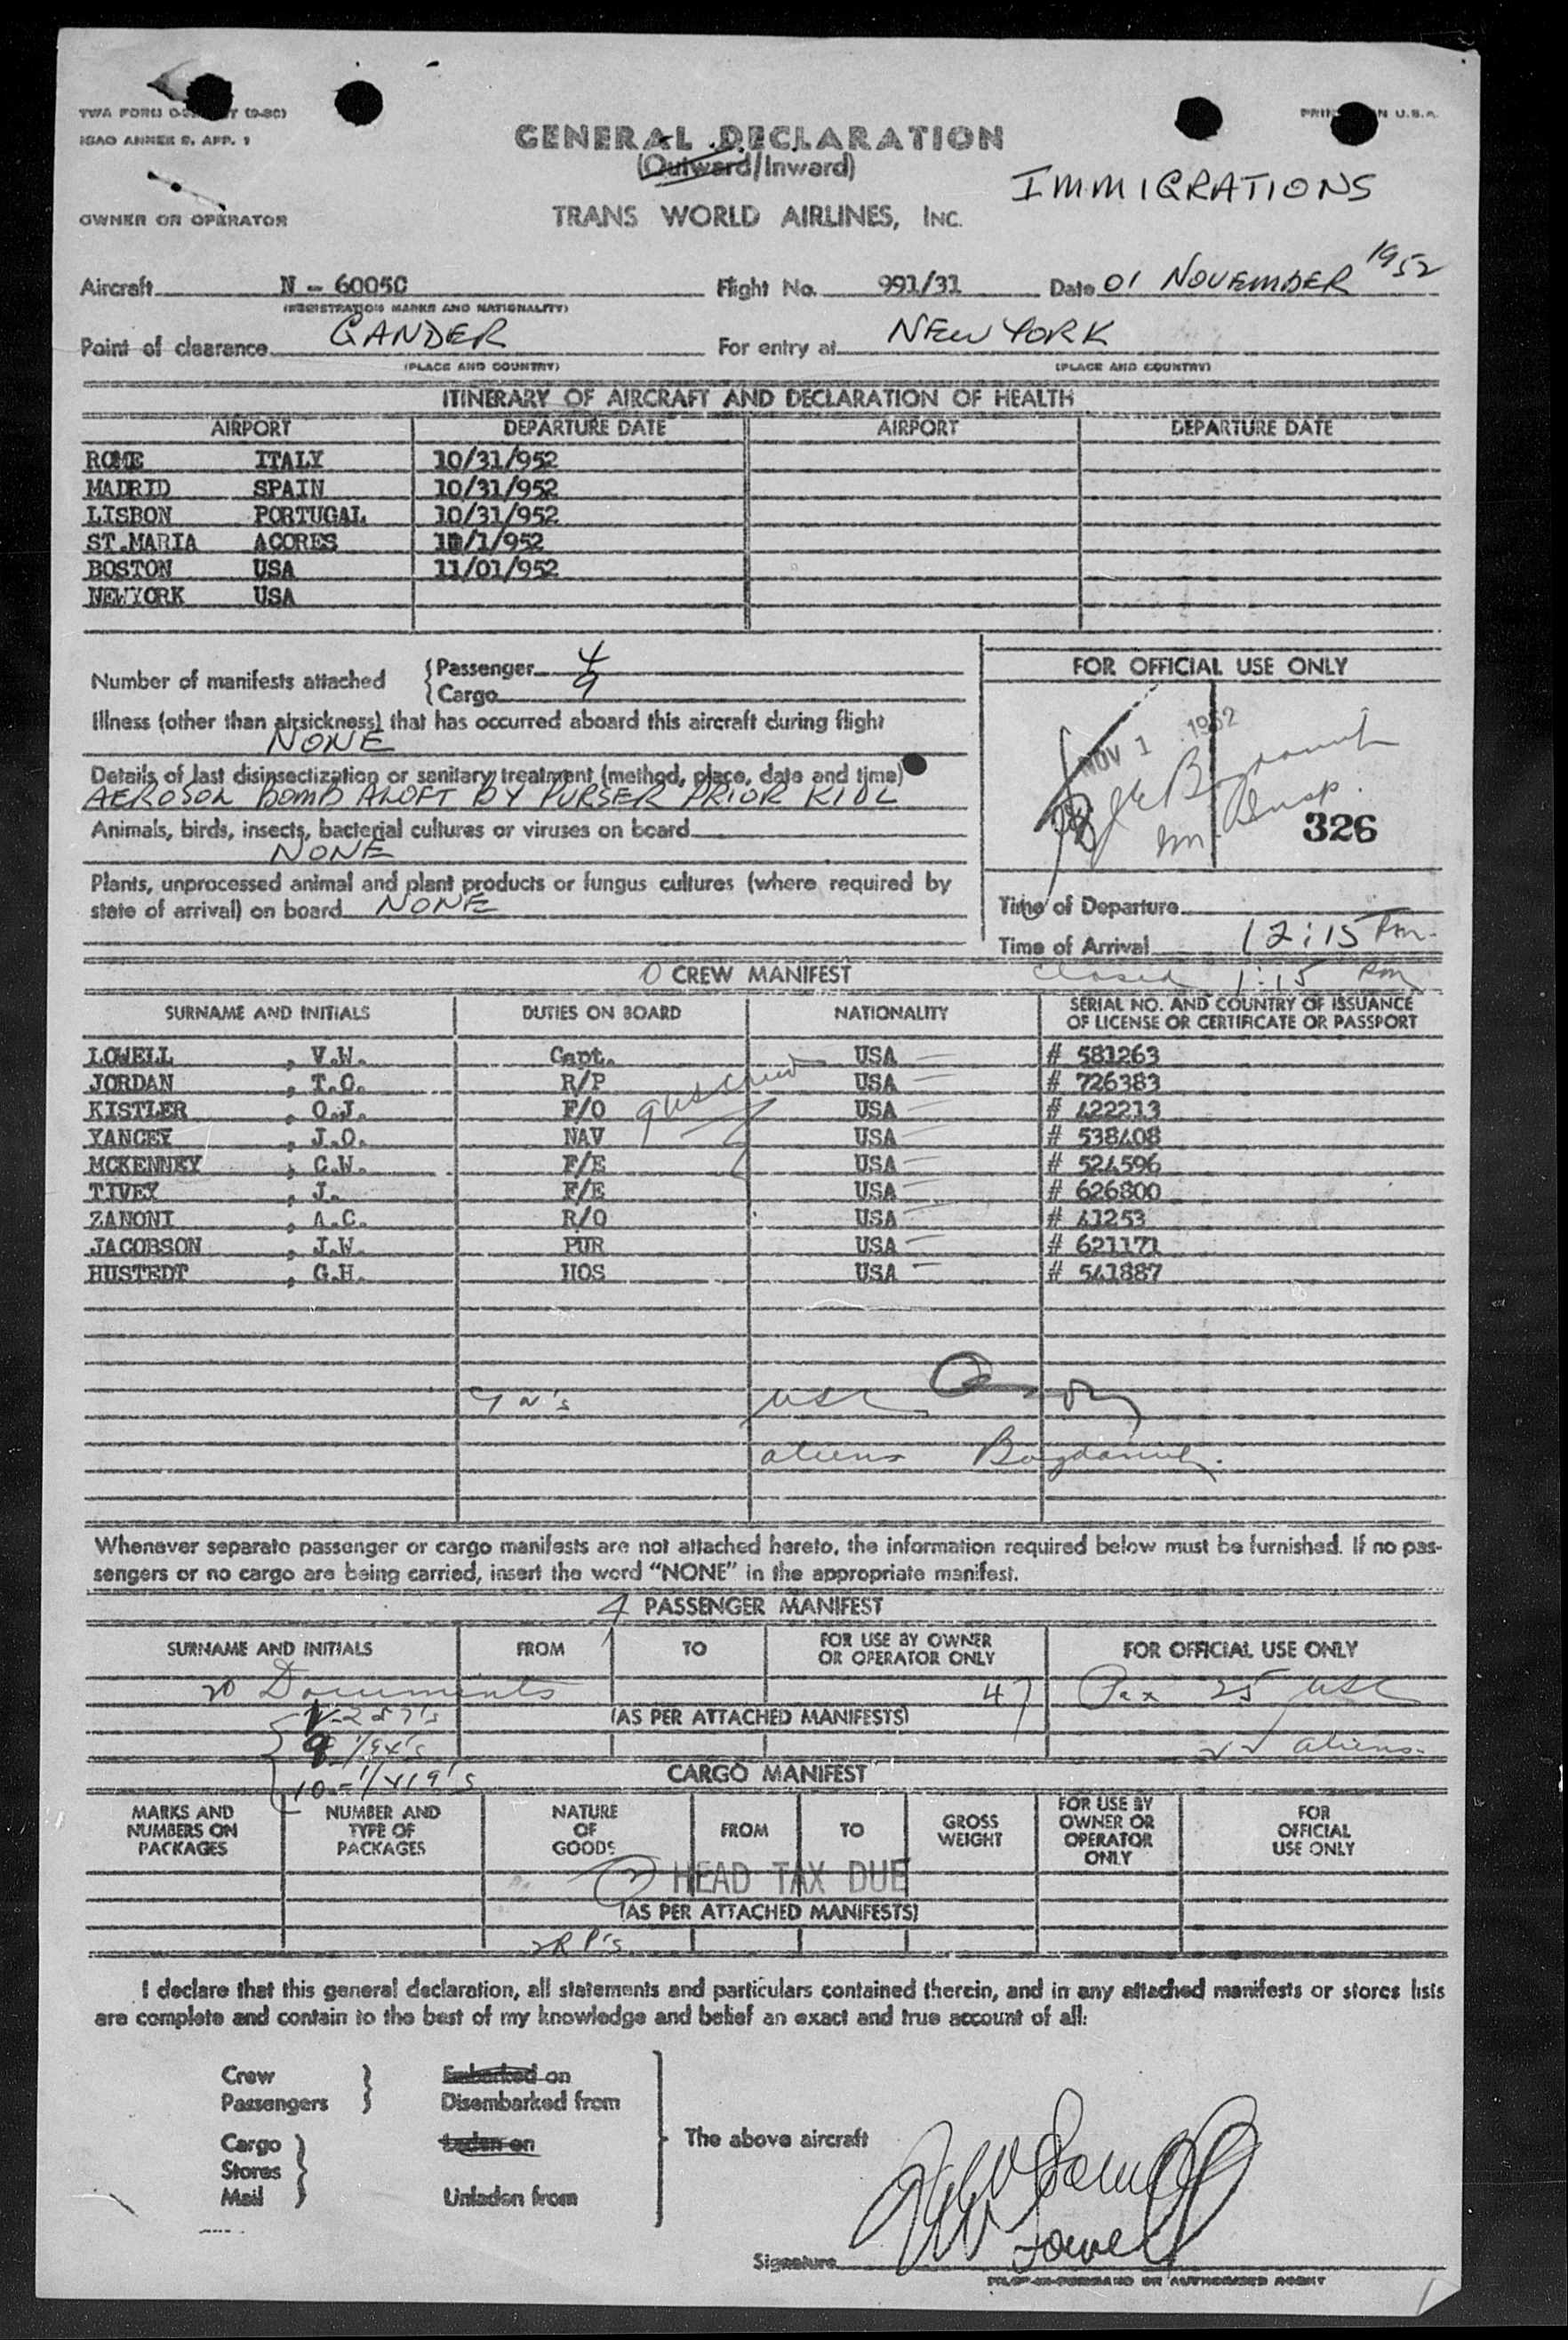 TWA FORM (9-50)
PRINTED IN U.S.A.
ICAO ANNEX 9, APP. 1
GENERAL DECLARATION
(Outward/Inward)
IMMIGRATIONS
OWNER OR OPERATOR
TRANS WORLD AIRLINES, INC.
Aircraft N - 6005C Flight No. 991/31 Date 01 NOVEMBER 1952
(REGISTRATION MARKS AND NATIONALITY)
Point of clearance GANDER For entry at NEW YORK
(PLACE AND COUNTRY) (PLACE AND COUNTRY)
ITINERARY OF AIRCRAFT AND DECLARATION OF HEALTH
AIRPORT DEPARTURE DATE AIRPORT DEPARTURE DATE
ROME ITALY 10/31/952
MADRID SPAIN 10/31/952
LISBON PORTUGAL 10/31/952
ST.MARIA ACORES 11/1/952
BOSTON USA 11/01/952
NEWYORK USA
Number of manifests attached
Passenger 4
Cargo 9
FOR OFFICIAL USE ONLY
Illness (other than airsickness) that has occurred aboard this aircraft during flight
NONE
NOV 1 1952
Details of last disinsectization or sanitary treatment (method, place, date and time)
AEROSOL BOMB ALOFT BY PURSER PRIOR KIDL
Animals, birds, insects, bacterial cultures or viruses on board
NONE
Im. Insp.
326
Plants, unprocessed animal and plant products or fungus cultures (where required by
state of arrival) on board NONE
Time of Departure
Time of Arrival 12:15 Pm.
closed 1:15 Pm
CREW MANIFEST
SURNAME AND INITIALS DUTIES ON BOARD NATIONALITY SERIAL NO. AND COUNTRY OF ISSUANCE
OF LICENSE OR CERTIFICATE OR PASSPORT
LOWELL , V.W. Capt. USA # 581263
JORDAN , T.O. R/P USA # 726383
KISTLER , O.J. F/O USA # 422213
YANCEY , J.O. NAV USA # 538408
MCKENNEY , C.W. F/E USA # 524596
TIVEY , J. F/E USA # 626800
ZANONI , A.C. R/O USA # 41253
JACOBSON , J.W. PUR USA # 621171
HUSTEDT , G.H. HOS USA # 541887
9 usc crew
usc
aliens
Whenever separate passenger or cargo manifests are not attached hereto, the information required below must be furnished. If no pas-
sengers or no cargo are being carried, insert the word “NONE” in the appropriate manifest.
4 PASSENGER MANIFEST
SURNAME AND INITIALS FROM TO FOR USE BY OWNER
OR OPERATOR ONLY FOR OFFICIAL USE ONLY
20 Documents 47 Pax 25 usc
(AS PER ATTACHED MANIFESTS)
22 aliens.
CARGO MANIFEST
MARKS AND
NUMBERS ON
PACKAGES
NUMBER AND
TYPE OF
PACKAGES
NATURE
OF
GOODS
FROM
TO
GROSS
WEIGHT
FOR USE BY
OWNER OR
OPERATOR
ONLY
FOR
OFFICIAL
USE ONLY
HEAD TAX DUE
(AS PER ATTACHED MANIFESTS)
2 RP's
I declare that this general declaration, all statements and particulars contained therein, and in any attached manifests or stores lists
are complete and contain to the best of my knowledge and belief an exact and true account of all:
Crew
Passengers
Embarked on
Disembarked from
Cargo
Stores
Mail
Laden on
Unladen from
The above aircraft
VW Lowell
Signature
PILOT-IN-COMMAND OR AUTHORIZED AGENT